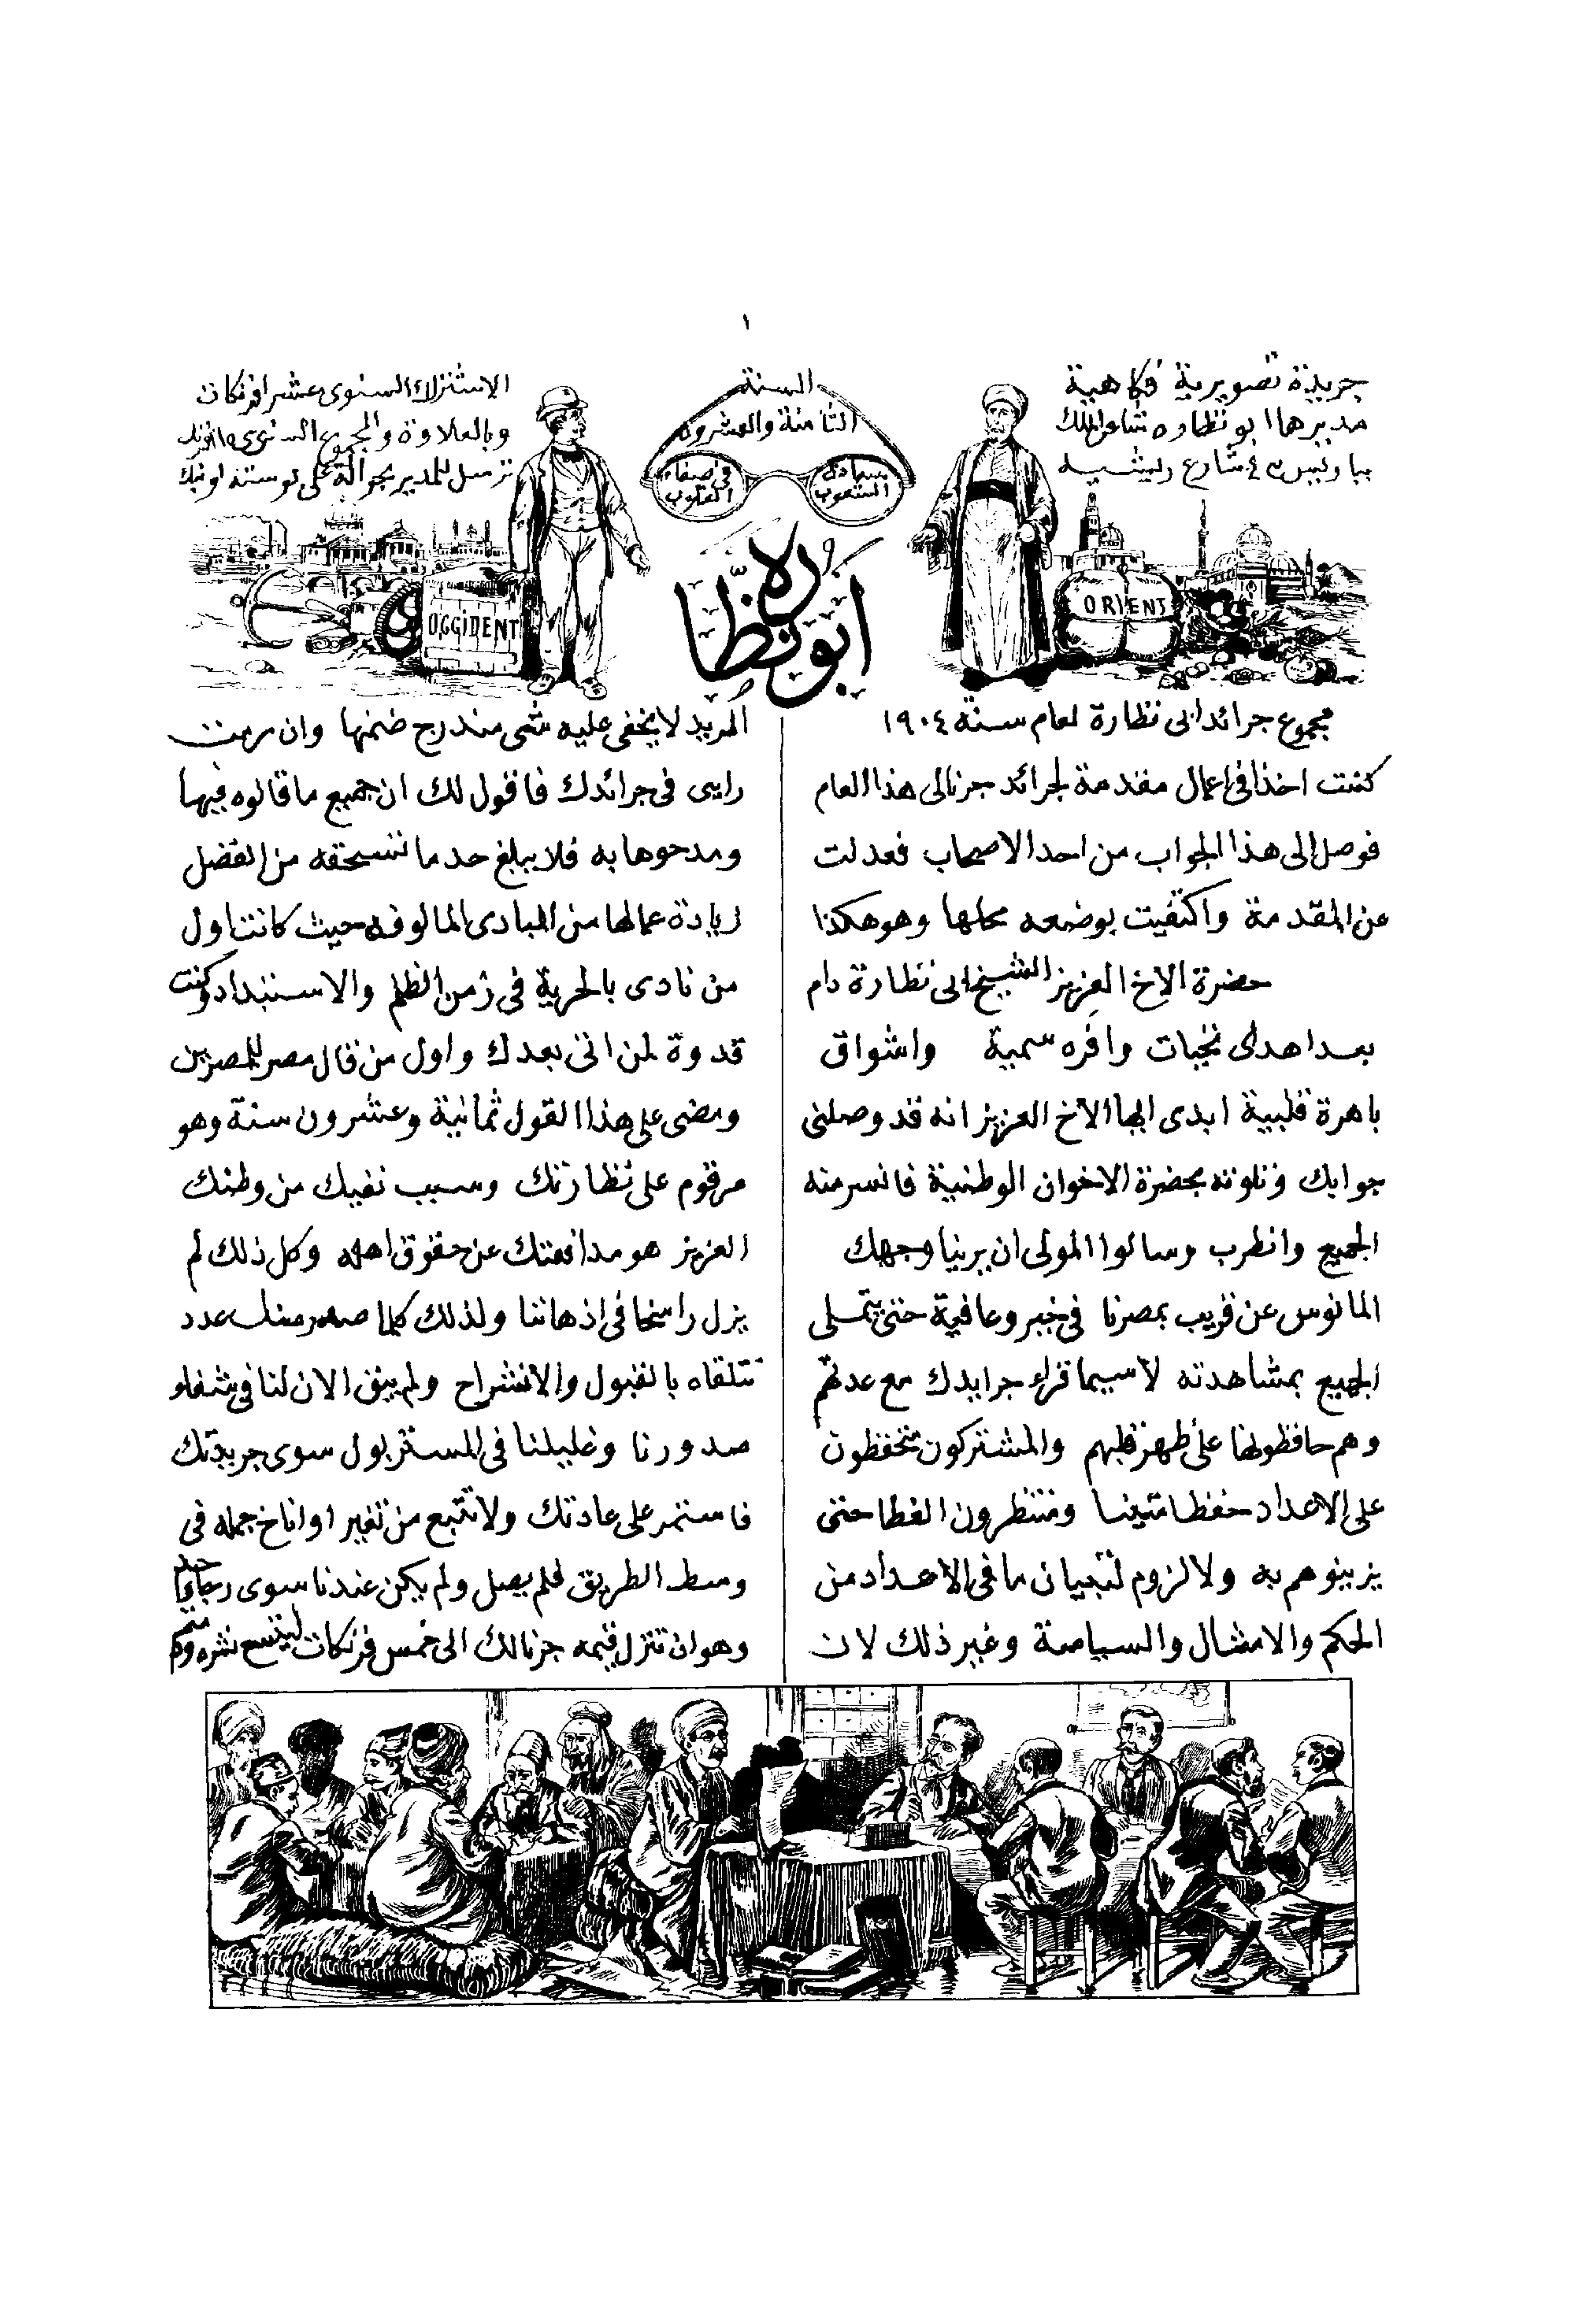 ١
جريدة تصويرية فكاهية
مديرها ابو نظاره شاعر الملك
بباريس ٤٣ شارع ريشيه
السنة
الثامنة والعشرون
سعادة الشعوب
في صفاء القلوب
الاشتراك السنوى عشر افرنكات
وبالعلاوة والمجموع السنوى
ترسل للمدير بحوالة على بوسته او بنك
ابو نظاره
ORIENT
OCCIDENT
مجموع جرائد ابى نظارة لعام سنة ١٩٠٤
كنت اخذا فى اعمال مقدمة لجرائد جرنالى هذا العام
فوصل الى هذا الجواب من احد الاصحاب فعدلت
عن المقدمة واكتفيت بوضعه محلها وهو هكذا
حضرة الاخ العزيز الشيخ ابى نظارة دام
بعد اهدى تحيات وافره سمية واشواق
باهرة قلبية ابدى ايها الاخ العزيز انه قد وصلنى
جوابك وتلوته بحضرة الاخوان الوطنية فانسر منه
الجميع وانطرب وسالوا المولى ان يرينا وجهك
المانوس عن قريب بمصرنا فى خير وعافية حتى يتملى
الجميع بمشاهدته لاسيما قراء جرايدك مع عدتهم
وهم حافظونها على ظهر قلبهم والمشتركون متحفظون
على الاعداد حفظا متينا ومنتظرون الغطا حتى
يزينوهم به ولا لزوم لتبيان ما فى الاعداد من
الحكم والامثال والسياصة وغير ذلك لان
المريد لا يخفى عليه شى مندرج ضمنها وان رمت
رايى فى جرائدك فاقول لك ان جميع ما قالوه فيها
ومدحوها به فلا يبلغ حد ما تستحقه من الفضل
زيادة عما لها من المبادى المالوفه حيث كانت اول
من نادى بالحرية فى زمن الظلم والاستبداد وكنت
قدوة لمن اتى بعدك واول من قال مصر للمصريين
ومضى على هذا القول ثمانية وعشرون سنة وهو
مرقوم على نظارتك وسبب نفيك من وطنك
العزيز هو مدافعتك عن حقوق اهله وكل ذلك لم
يزل راسخا فى اذهاننا ولذلك كلما صدر منك عدد
نتلقاه بالقبول والانشراح ولم يبق الان لنا فى شفاء
صدورنا وغليلنا فى المستر بول سوى جريدتك
فاستمر على عادتك ولا تتبع من تغير او اناخ جمله فى
وسط الطريق فلم يصل ولم يكن عندنا سوى رجا واحد
وهو ان تنزل قيمه جرنالك الى خمس فرنكات ليتسع نشره